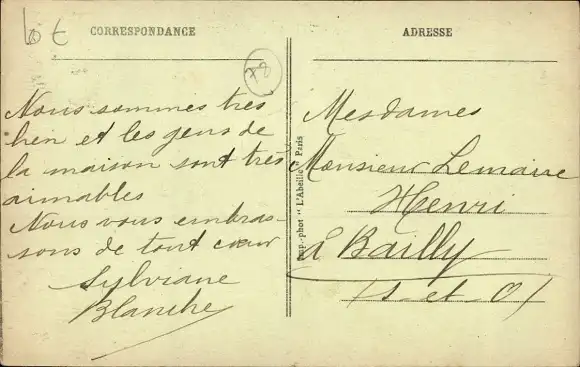 CORRESPONDANCE
ADRESSE
78
Nous sommes très
bien et les gens de
la maison sont très
aimables
Nous vous embras-
sons de tout cœur
Sylviane
Blanche
Imp.-phot "L'Abeille" Paris
Mesdames
Monsieur Lemaire
Henri
à Bailly
(S-et-O)